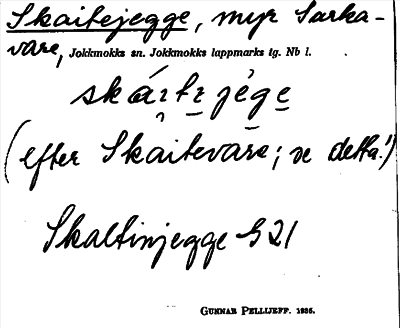 Skaitejegge, myr Sarka-
våre, Jokkmokks sn. Jokkmokks lappmarks tg. Nb l.
skáɪtɪ jége̱
(efter Skaitevare; se detta!)
Skaltinjegge G 21
GUNNAR PELLIJEFF. 1935.